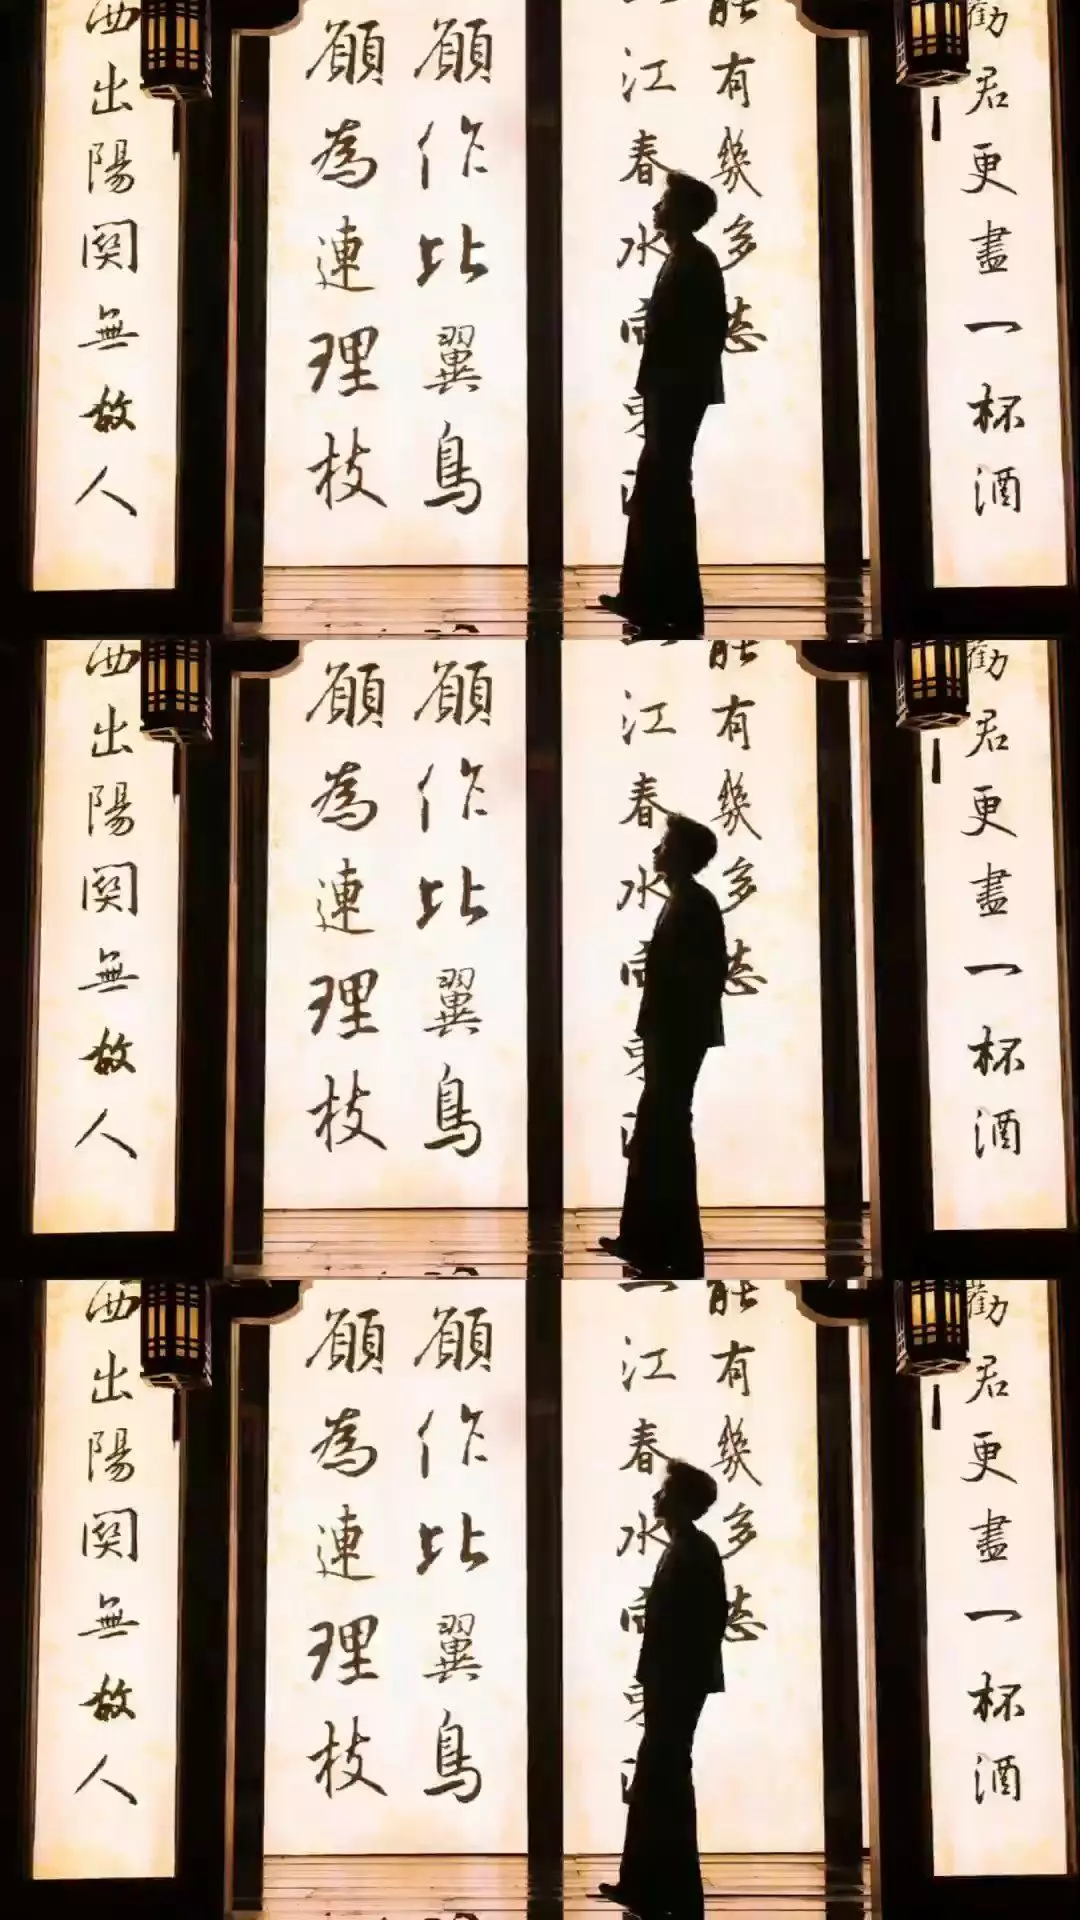 勸君更盡一杯酒
能有幾多愁
一江春水向東
願作比翼鳥
願為連理枝
西出陽關無故人
勸君更盡一杯酒
能有幾多愁
一江春水向東
願作比翼鳥
願為連理枝
西出陽關無故人
勸君更盡一杯酒
能有幾多愁
一江春水向東
願作比翼鳥
願為連理枝
西出陽關無故人